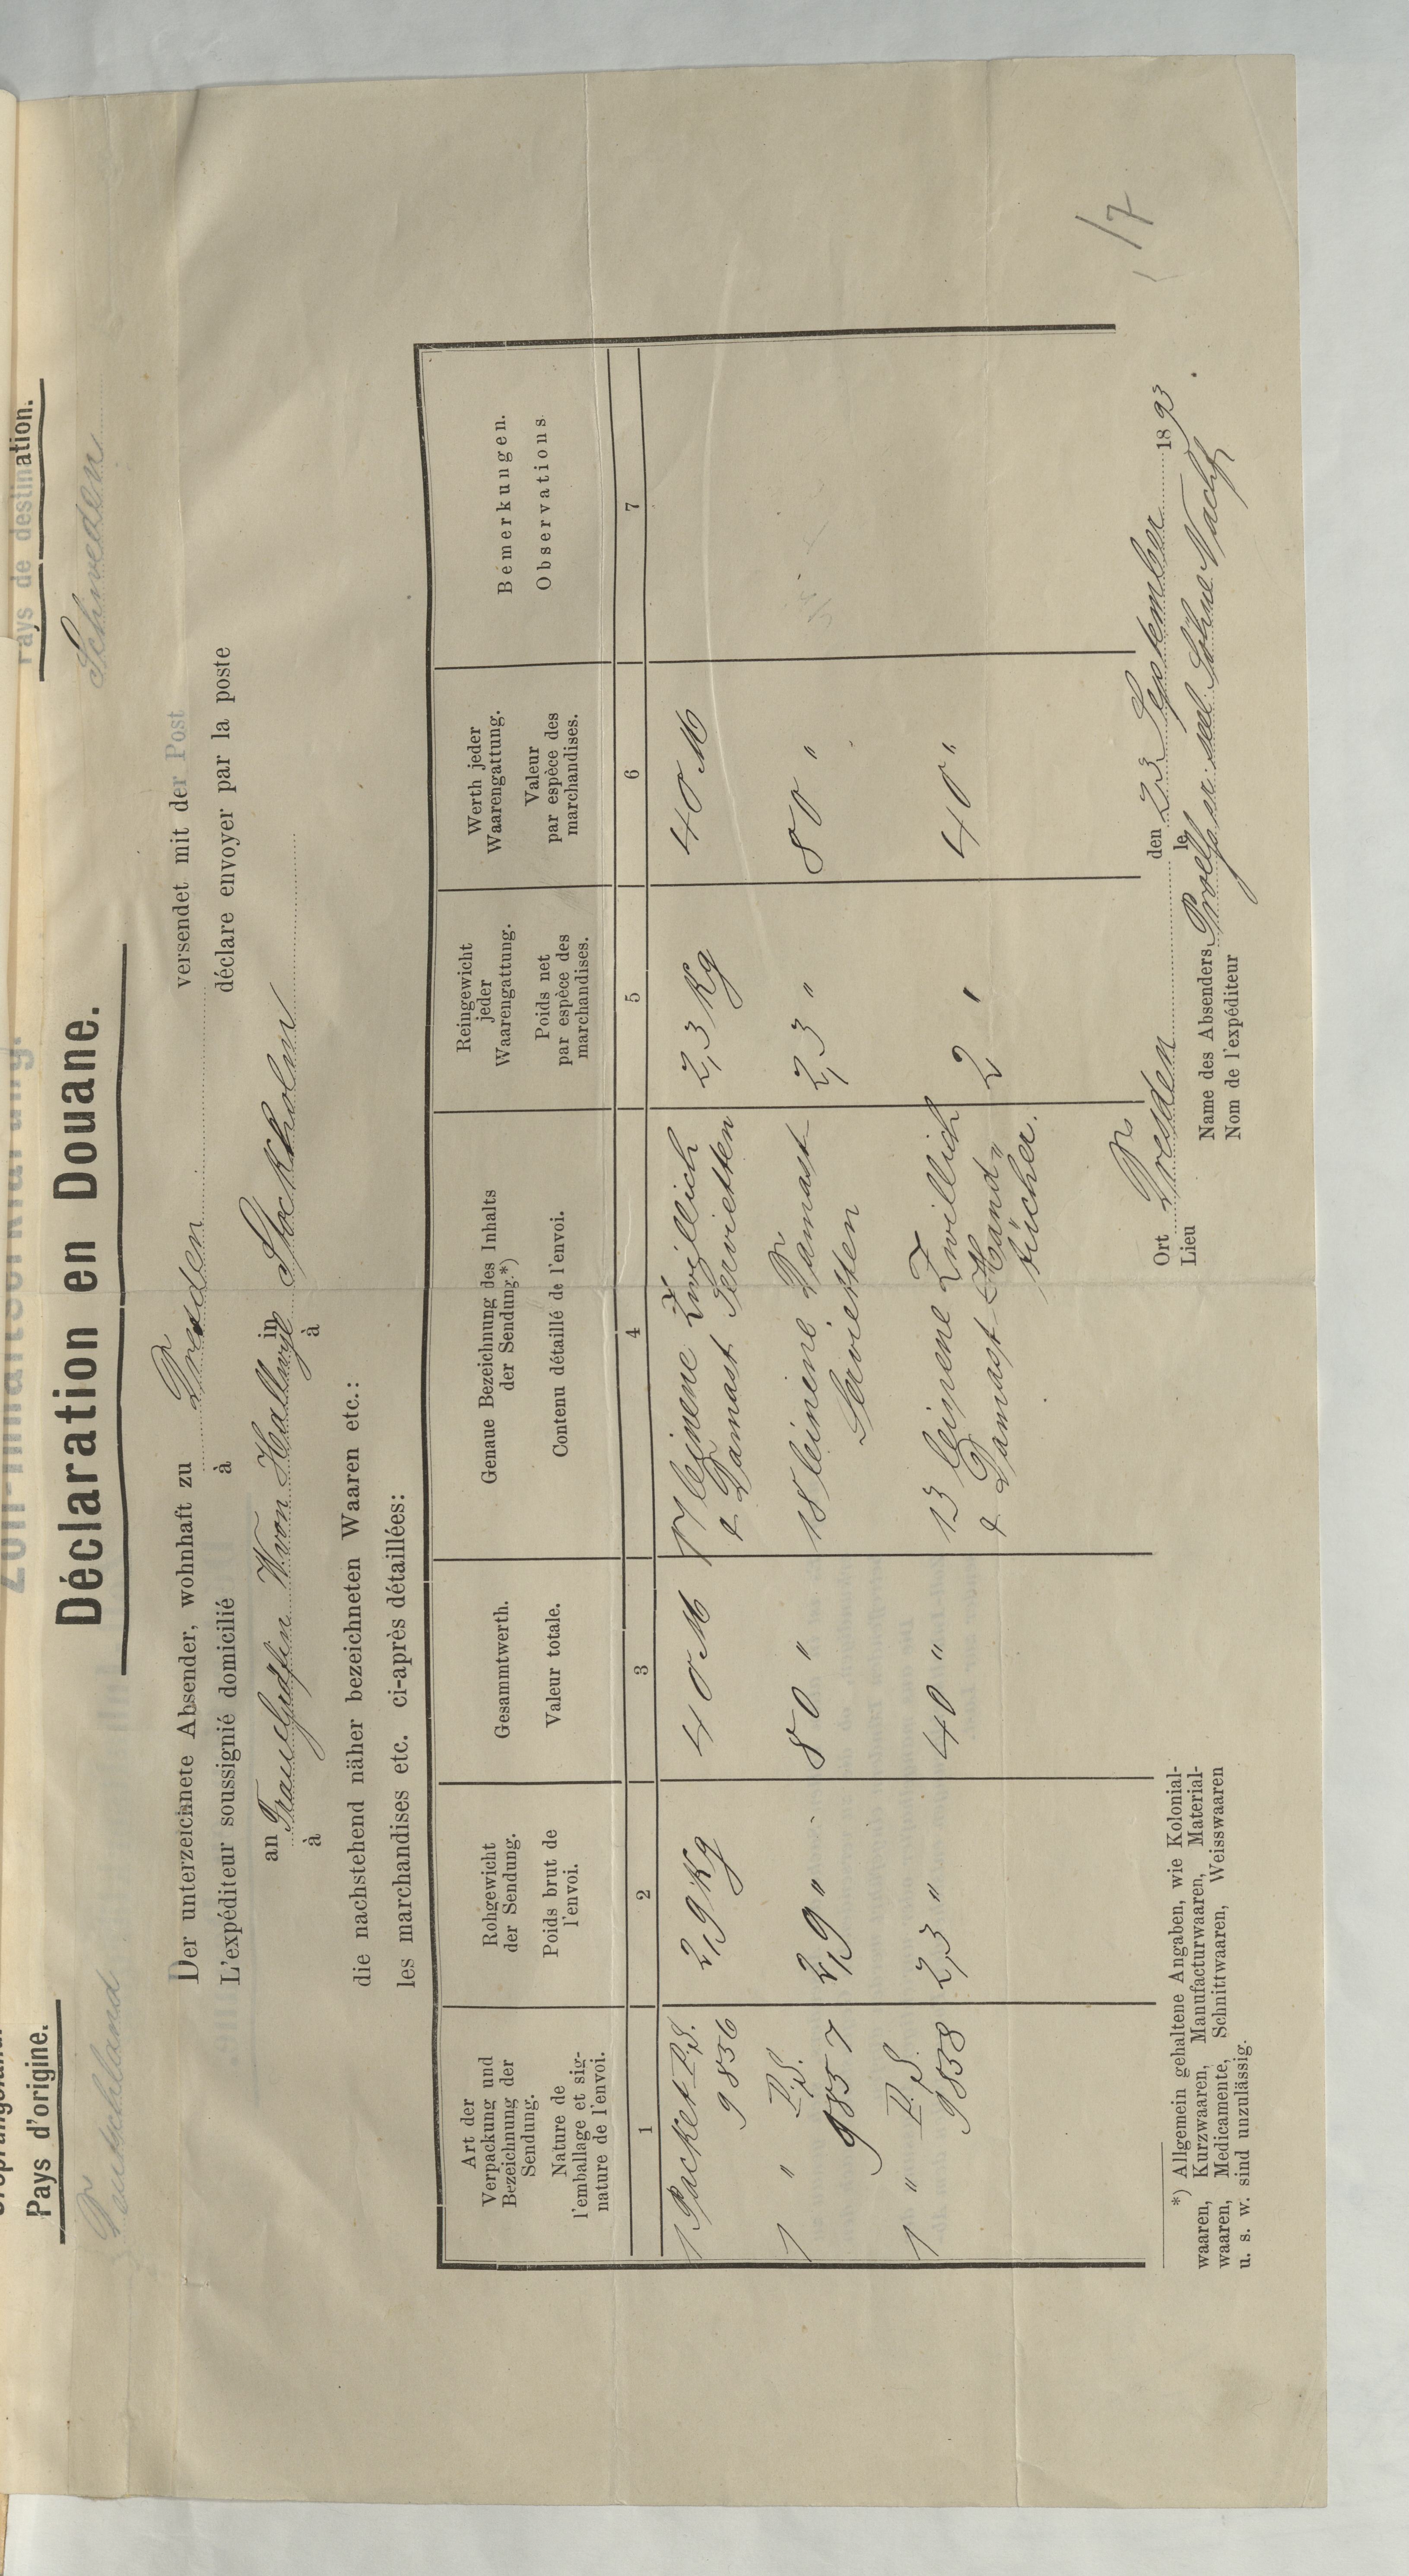 Pays d'origine.
Pays de destination.
Deutschland
Schweden
Déclaration en Douane.
Der unterzeichnete Absender, wohnhaft zu Dresden versendet mit der Post
L'expéditeur soussigné domicilié à déclare envoyer par la poste
an Frau Gräfin W. von Hallwyl in Stockholm
à à
die nachstehend näher bezeichneten Waaren etc.:
les marchandises etc. ci-après détaillées:
Art der
Verpackung und
Bezeichnung der
Sendung.
Nature de
l'emballage et sig-
nature de l'envoi.
Rohgewicht
der Sendung.
Poids brut de
l'envoi.
Gesammtwerth.
Valeur totale.
Genaue Bezeichnung des Inhalts
der Sendung.*)
Contenu détaillé de l'envoi.
Reingewicht
jeder
Waarengattung.
Poids net
par espèce des
marchandises.
Werth jeder
Waarengattung.
Valeur
par espèce des
marchandises.
Bémerkungen.
Observations
1 2 3 4 5 6 7
1 Packet P.S. 2,9 Kg 40 M 17 leinene Zwillich 2,3 Kg 40 M
9836 & Damast Servietten
1 " P.S. 80 " 18 leinene Damast- 80 "
9837 2,9 " Servietten 2,3 "
1 " P.S. 2,3 " 40 " 13 leinene Zwillich 40 "
9838 & Damast-Hand- 2 "
tücher.
17
Ort Dresden den 23 September 1893
Lieu le
Name des Absenders Proelss sen. sel. Söhne Nachf.
Nom de l'expéditeur
*) Allgemein gehaltene Angaben, wie Kolonial-
waaren, Kurzwaaren, Manufacturwaaren, Material-
waaren, Medicamente, Schnittwaaren, Weisswaaren
u. s. w. sind unzulässig.